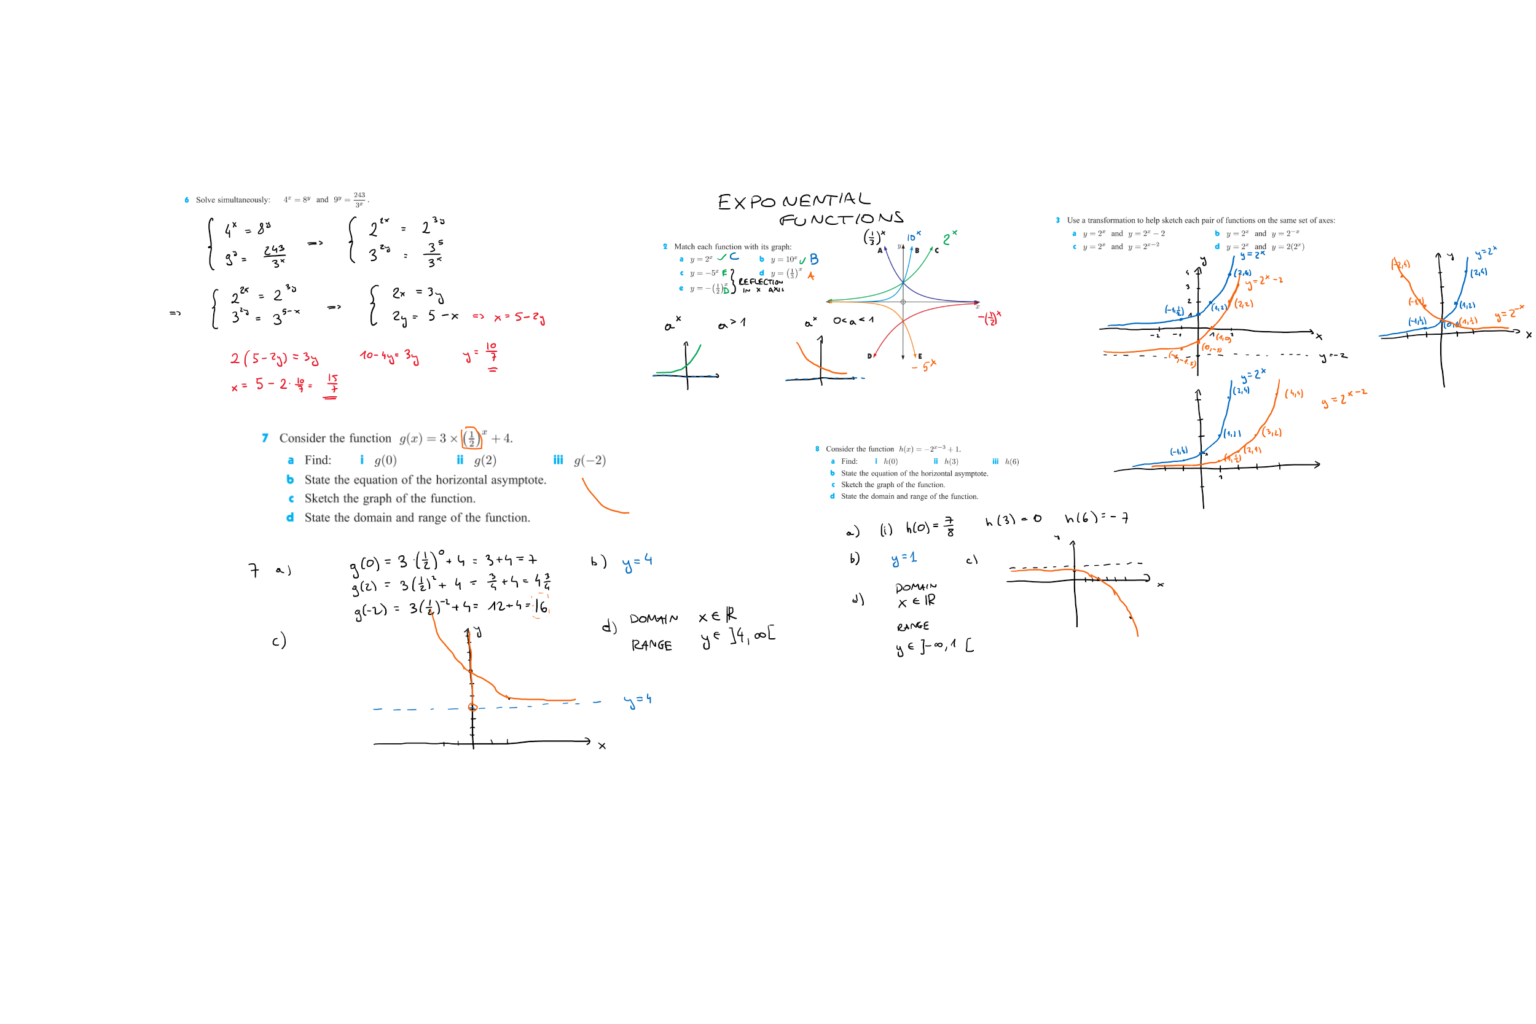 EXPONENTIAL
FUNCTIONS
6 Solve simultaneously: 4ˣ = 8ʸ and 9ʸ = 243/3ˣ.
{ 4ˣ = 8ʸ => { 2²ˣ = 2³ʸ
9ʸ = 243/3ˣ 3²ʸ = 3⁵/3ˣ
=> { 2²ˣ = 2³ʸ => { 2x = 3y
3²ʸ = 3⁵⁻ˣ 2y = 5 - x => x = 5-2y
2(5-2y) = 3y 10-4y = 3y y = 10/7
x = 5 - 2·10/7 = 15/7
2 Match each function with its graph:
a y = 2ˣ ✓ C b y = 10ˣ ✓ B
c y = −5ˣ E d y = (1/2)ˣ A
e y = −(1/2)ˣ D
REFLECTION
IN X AXIS
(1/2)ˣ 10ˣ 2ˣ
A y B C
x
-(1/2)ˣ
D E
-5ˣ
aˣ a>1 aˣ 0<a<1
3 Use a transformation to help sketch each pair of functions on the same set of axes:
a y = 2ˣ and y = 2ˣ − 2 b y = 2ˣ and y = 2⁻ˣ
c y = 2ˣ and y = 2ˣ⁻² d y = 2ˣ and y = 2(2ˣ)
y y=2ˣ
(2,4)
y=2ˣ-2
(-1,½) (1,2) (2,2)
-2 -1 1 2 x
(1,0)
(0,-1)
y=-2
y y=2ˣ
(2,4)
(1,2)
(-1,½) (1,½) y=2⁻ˣ
x
y=2ˣ
(2,4) (4,4) y=2ˣ⁻²
(1,2) (3,2)
(-1,½) (2,1)
(1,½)
7 Consider the function g(x) = 3 × (1/2)ˣ + 4.
a Find: i g(0) ii g(2) iii g(−2)
b State the equation of the horizontal asymptote.
c Sketch the graph of the function.
d State the domain and range of the function.
7 a) g(0) = 3·(1/2)⁰ + 4 = 3+4 = 7
g(2) = 3(1/2)² + 4 = 3/4 + 4 = 4 3/4
g(-2) = 3(1/2)⁻² + 4 = 12+4 = 16
b) y=4
c)
y
y=4
x
d) DOMAIN x ∈ ℝ
RANGE y ∈ ]4, ∞[
8 Consider the function h(x) = −2ˣ⁻³ + 1.
a Find: i h(0) ii h(3) iii h(6)
b State the equation of the horizontal asymptote.
c Sketch the graph of the function.
d State the domain and range of the function.
a) (i) h(0) = 7/8 h(3) = 0 h(6) = -7
b) y=1 c)
x
d) DOMAIN
x ∈ ℝ
RANGE
y ∈ ]-∞, 1[